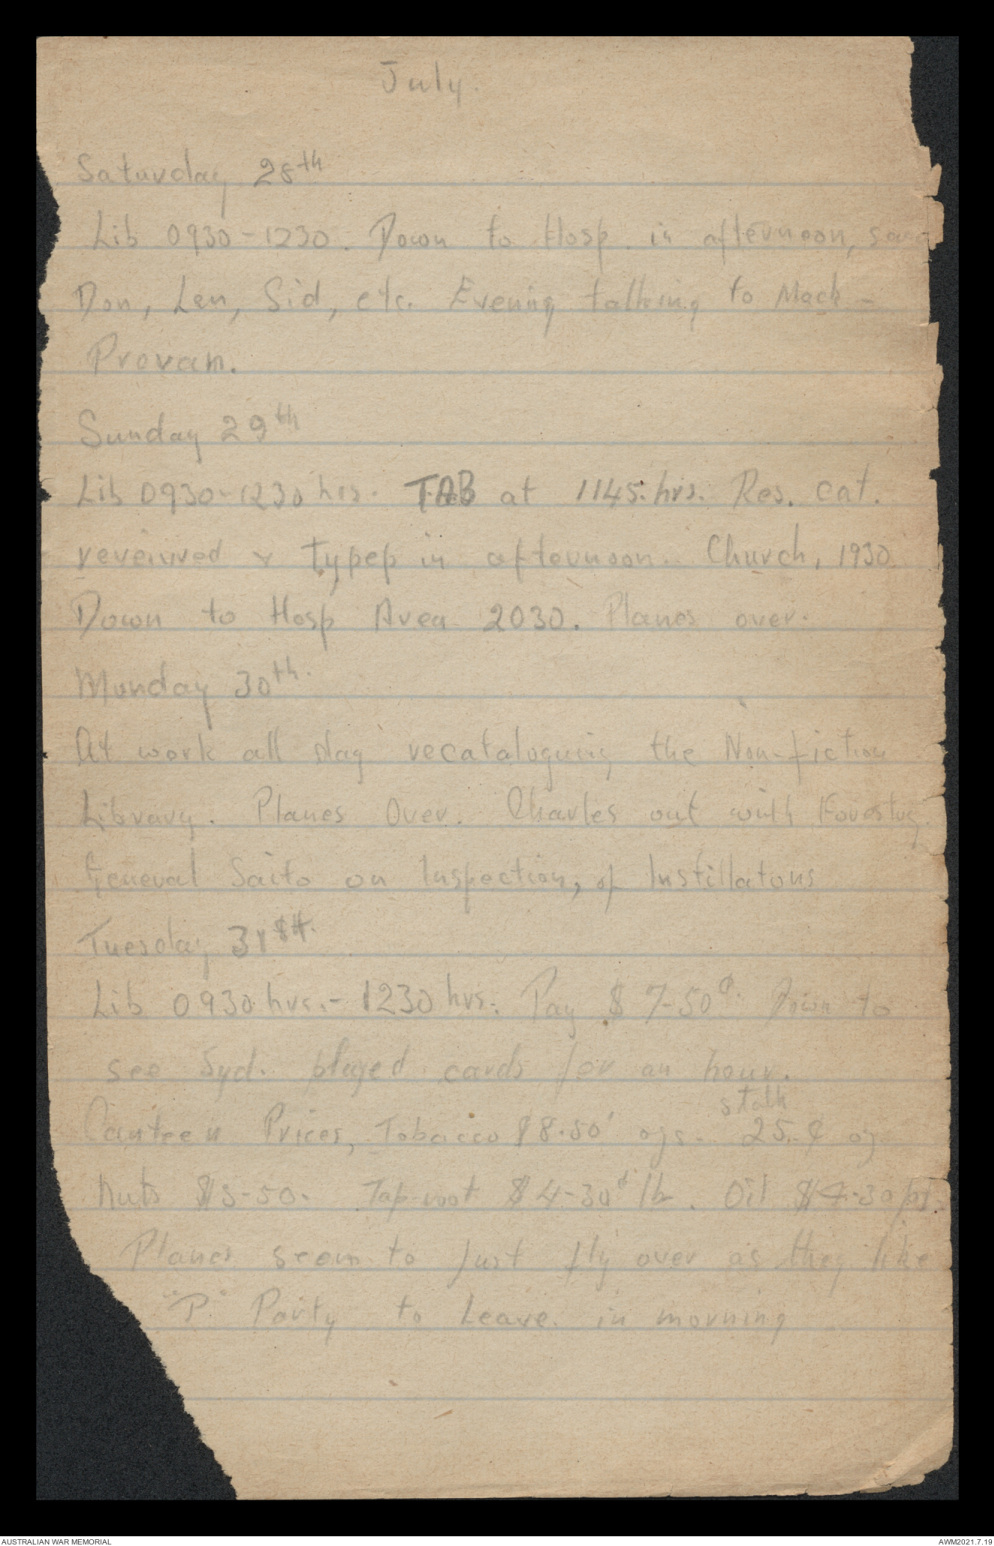 July.
Saturday 28th
Lib 0930-1230. Down to Hosp. in afternoon, saw
Don, Len, Sid, etc. Evening talking to Mack -
Provan.
Sunday 29th
Lib 0930-1230 hrs. TAB at 1145. hrs. Res. cat.
reveiwed & typep in afternoon. Church, 1930.
Down to Hosp Area 2030. Planes over.
Monday 30th.
At work all day recataloguing the Non-fiction
Library. Planes Over. Charles out with
General Saito on Inspection, of Instillatons
Tuesday 31st.
Lib 0930 hrs. - 1230 hrs. Pay $7-50¢. Down to
see Syd. played cards for an hour.
stalk
Canteen Prices, Tobacco $8.50 ozs. 25.¢ oz
Nuts $3-50. Tap-root $4-30¢ lb. Oil $4-30
Planes seem to just fly over as they like
"P." Party to Leave. in morning
AUSTRALIAN WAR MEMORIAL
AWM2021.7.19